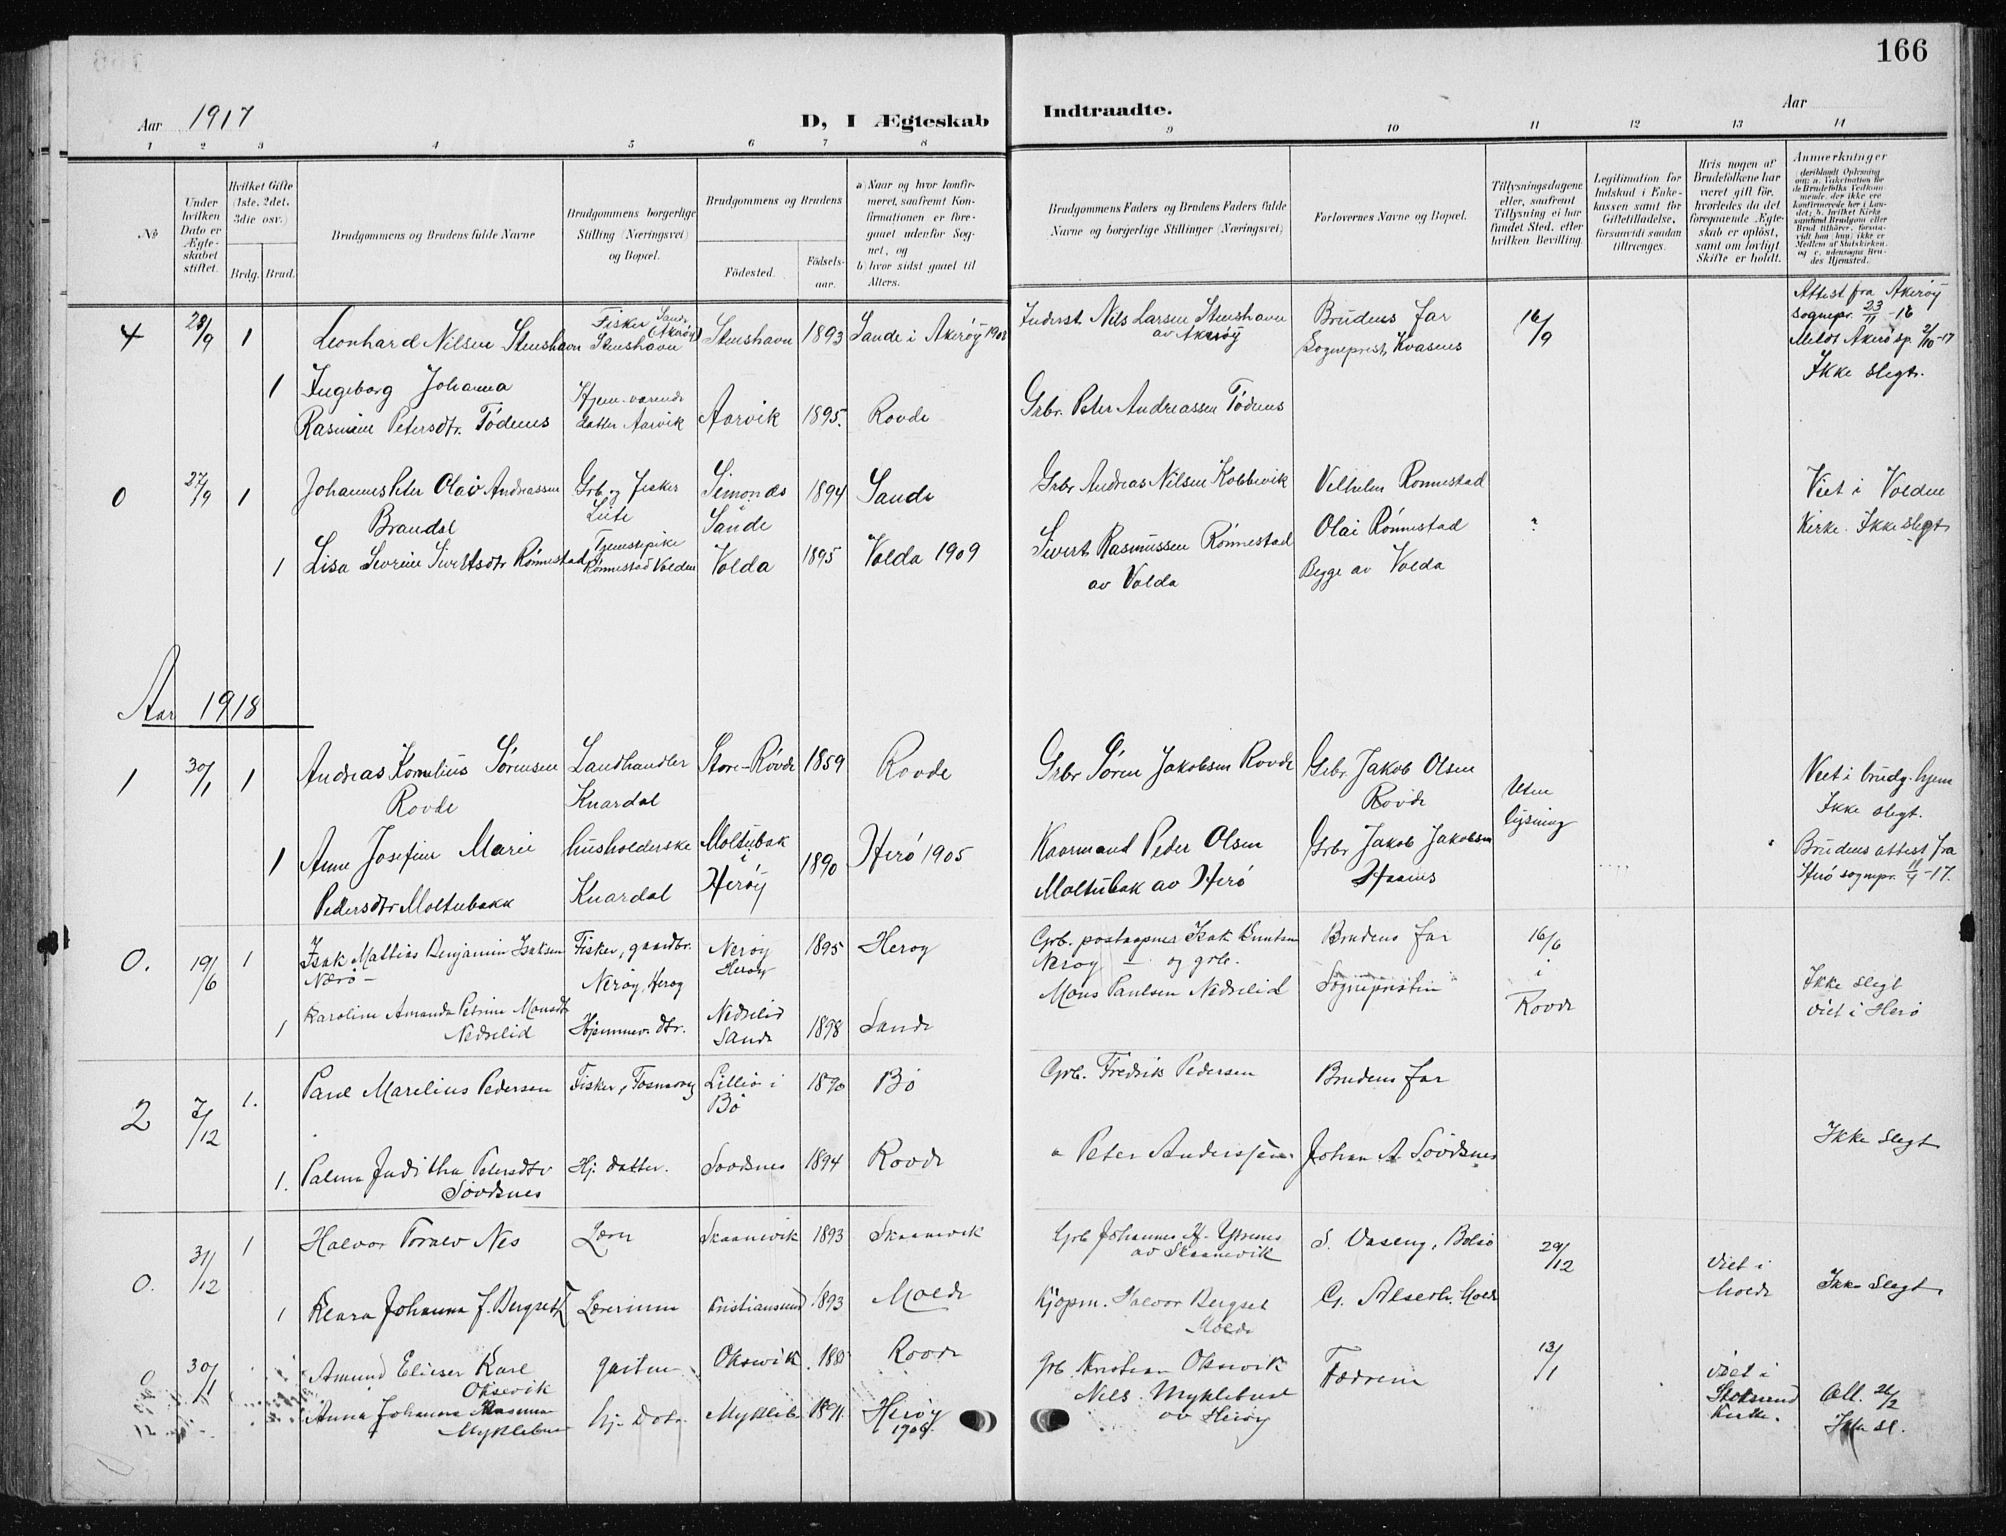 166
Aar 1917
D, I Ægteskab Indtraadte.
Aar
1 2 3 4 5 6 7 8 9 10 11 12 13 14
No
Under hvilken Dato er Ægteskabet stiftet.
Hvilket Gifte (1ste, 2det, 3die osv.)
Brdg. Brud.
Brudgommens og Brudens fulde Navne
Brudgommens borgerlige Stilling (Næringsvei) og Bopæl.
Brudgommens og Brudens
Fødested.
Fødselsaar.
a) Naar og hvor konfirmeret, saafremt Konfirmationen er foregaaet udenfor Sognet, og
b) hvor sidst gaaet til Alters.
Brudgommens Faders og Brudens Faders fulde Navne og borgerlige Stillinger (Næringsvei)
Forlovernes Navne og Bopæl.
Tillysningsdagene eller, saafremt Tillysning ei har fundet Sted, efter hvilken Bevilling.
Legitimation for Indskud i Enkekassen samt for Giftetilladelse, forsaavidt saadan tiltrænges.
Hvis nogen af Brudefolkene har været gift før, hvorledes da det foregaaende Ægteskab er opløst, samt om lovligt Skifte er holdt.
Anmerkninger
(deriblandt Oplysning om: a. Vakcination for de Brudefolks Vedkommende, der ikke ere konfirmerede her i Landet; b. hvilket Kirkesamfund Brudgom eller Brud tilhører, forsaavidt han (hun) ikke er Medlem af Statskirken, og c. udensogns Brudes Hjemsted.
4 28/9 1 Leonhard Nilsen Stenshavn
Fisker Sande (Akerøy) Stenshavn
Stenshavn 1893 Sande i Akerøy 1908
Inderst Nils Larsen Stenshavn
av Akerøy
Brudens far
Sogneprest Kvasnes
16/9
Attest fra Akerøy
sognepr. 23/11 -16
Meldt Akerø sp. 2/10 -17
Ikke slegt.
1 Ingeborg Johanna
Rasmine Petersdtr. Tødenes
Hjemmeværende
datter Aarvik
Aarvik 1895. Rovde
Grbr. Peter Andreassen Tødenes
0 27/9 1 Johannes Peter Olav Andreassen
Brandal
Grb. og fisker
Simones
i
Sande
1894 Sande
Grbr Andreas Nilsen Kobbevik
Vilhelm Rønnestad
Viet i Volden
Kirke. Ikke slegt
1 Lisa Severine Sivertsdtr Rønnestad
Tjenestepike
Rønnestad Volden
Volda 1895 Volda 1909
Sivert Rasmussen Rønnestad
av Volda
Olai Rønnestad
Begge av Volda
?
Aar 1918
1 30/1 1 Andreas Kornelius Sørensen
Rovde
Landhandler
Knardal
Store-Rovde 1859 Rovde
Grbr Søren Jakobsen Rovde
Grbr. Jakob Olsen
Rovde
Uten
lysning
Viet i brudg. hjem
Ikke slegt.
1 Anne Josefine Marie
Pedersdtr Moltubakk
husholderske
Knardal
Moltubak
i
Herøy
1890 Herø 1905
Kaarmand Peder Olsen
Moltubak av Herø
Grbr Jakob Jakobsen
Haanes
Brudens attest fra
Herø sognepr. 11/4 -17.
0. 19/6 1 Isak Mattias Benjamin Isaksen
Nærø
Fisker, gaardbr.
Nerøy, Herøy
Nerøy
Herøy
1895 Herøy
Grb. postaapner Isak Knutsen
Nerøy og grb.
Brudens far
16/6
i
Rovde
1 Karoline Amanda Petrine Monsdtr
Nedrelid
Hjemmev. dtr.
Nedrelid
Sande
1898 Sande
Mons Paulsen Nedrelid
Sognepresten
Ikke slegt
viet i Herø
2 7/12 1. Paul Marelius Pedersen
Fisker,
Lillø i
Bø
1890 Bø
Grb. Fredrik Pedersen
Brudens far
1. Palma Juditha Petersdtr
Søvdsnes
Hj. datter. Sovdsnes 1894 Rovde
" Peter Anderssen
Johan A. Søvdsnes
Ikke slegt
0. 31/12 1 Halvor Toralv Nes
Lærer
Skaanevik 1893 Skaanevik
Grb Johannes H. Ytrenes
av Skaanevik
S. Vaseng, Bolsø
29/12
1 Klara Johanna J. Bergseth
Lærerinne
Kristiansund 1893 Molde
Kjøpm. Halvor Bergset
Molde
Viet i
Molde
Ikke slegt
0 30/1 Amund Elieser Karl
Oksevik
gartner
Oksevik 188 Rovde
Grb. Kristian Oksevik
Fædrene
13/1
Viet i
Kirke.
Att. 26/2
Ikke sl.
Anna Johanna Rasmine
Myklebust
hj. datr.
Mykleb. 1891. Herøy
1906
Nils Myklebust
av Herøy